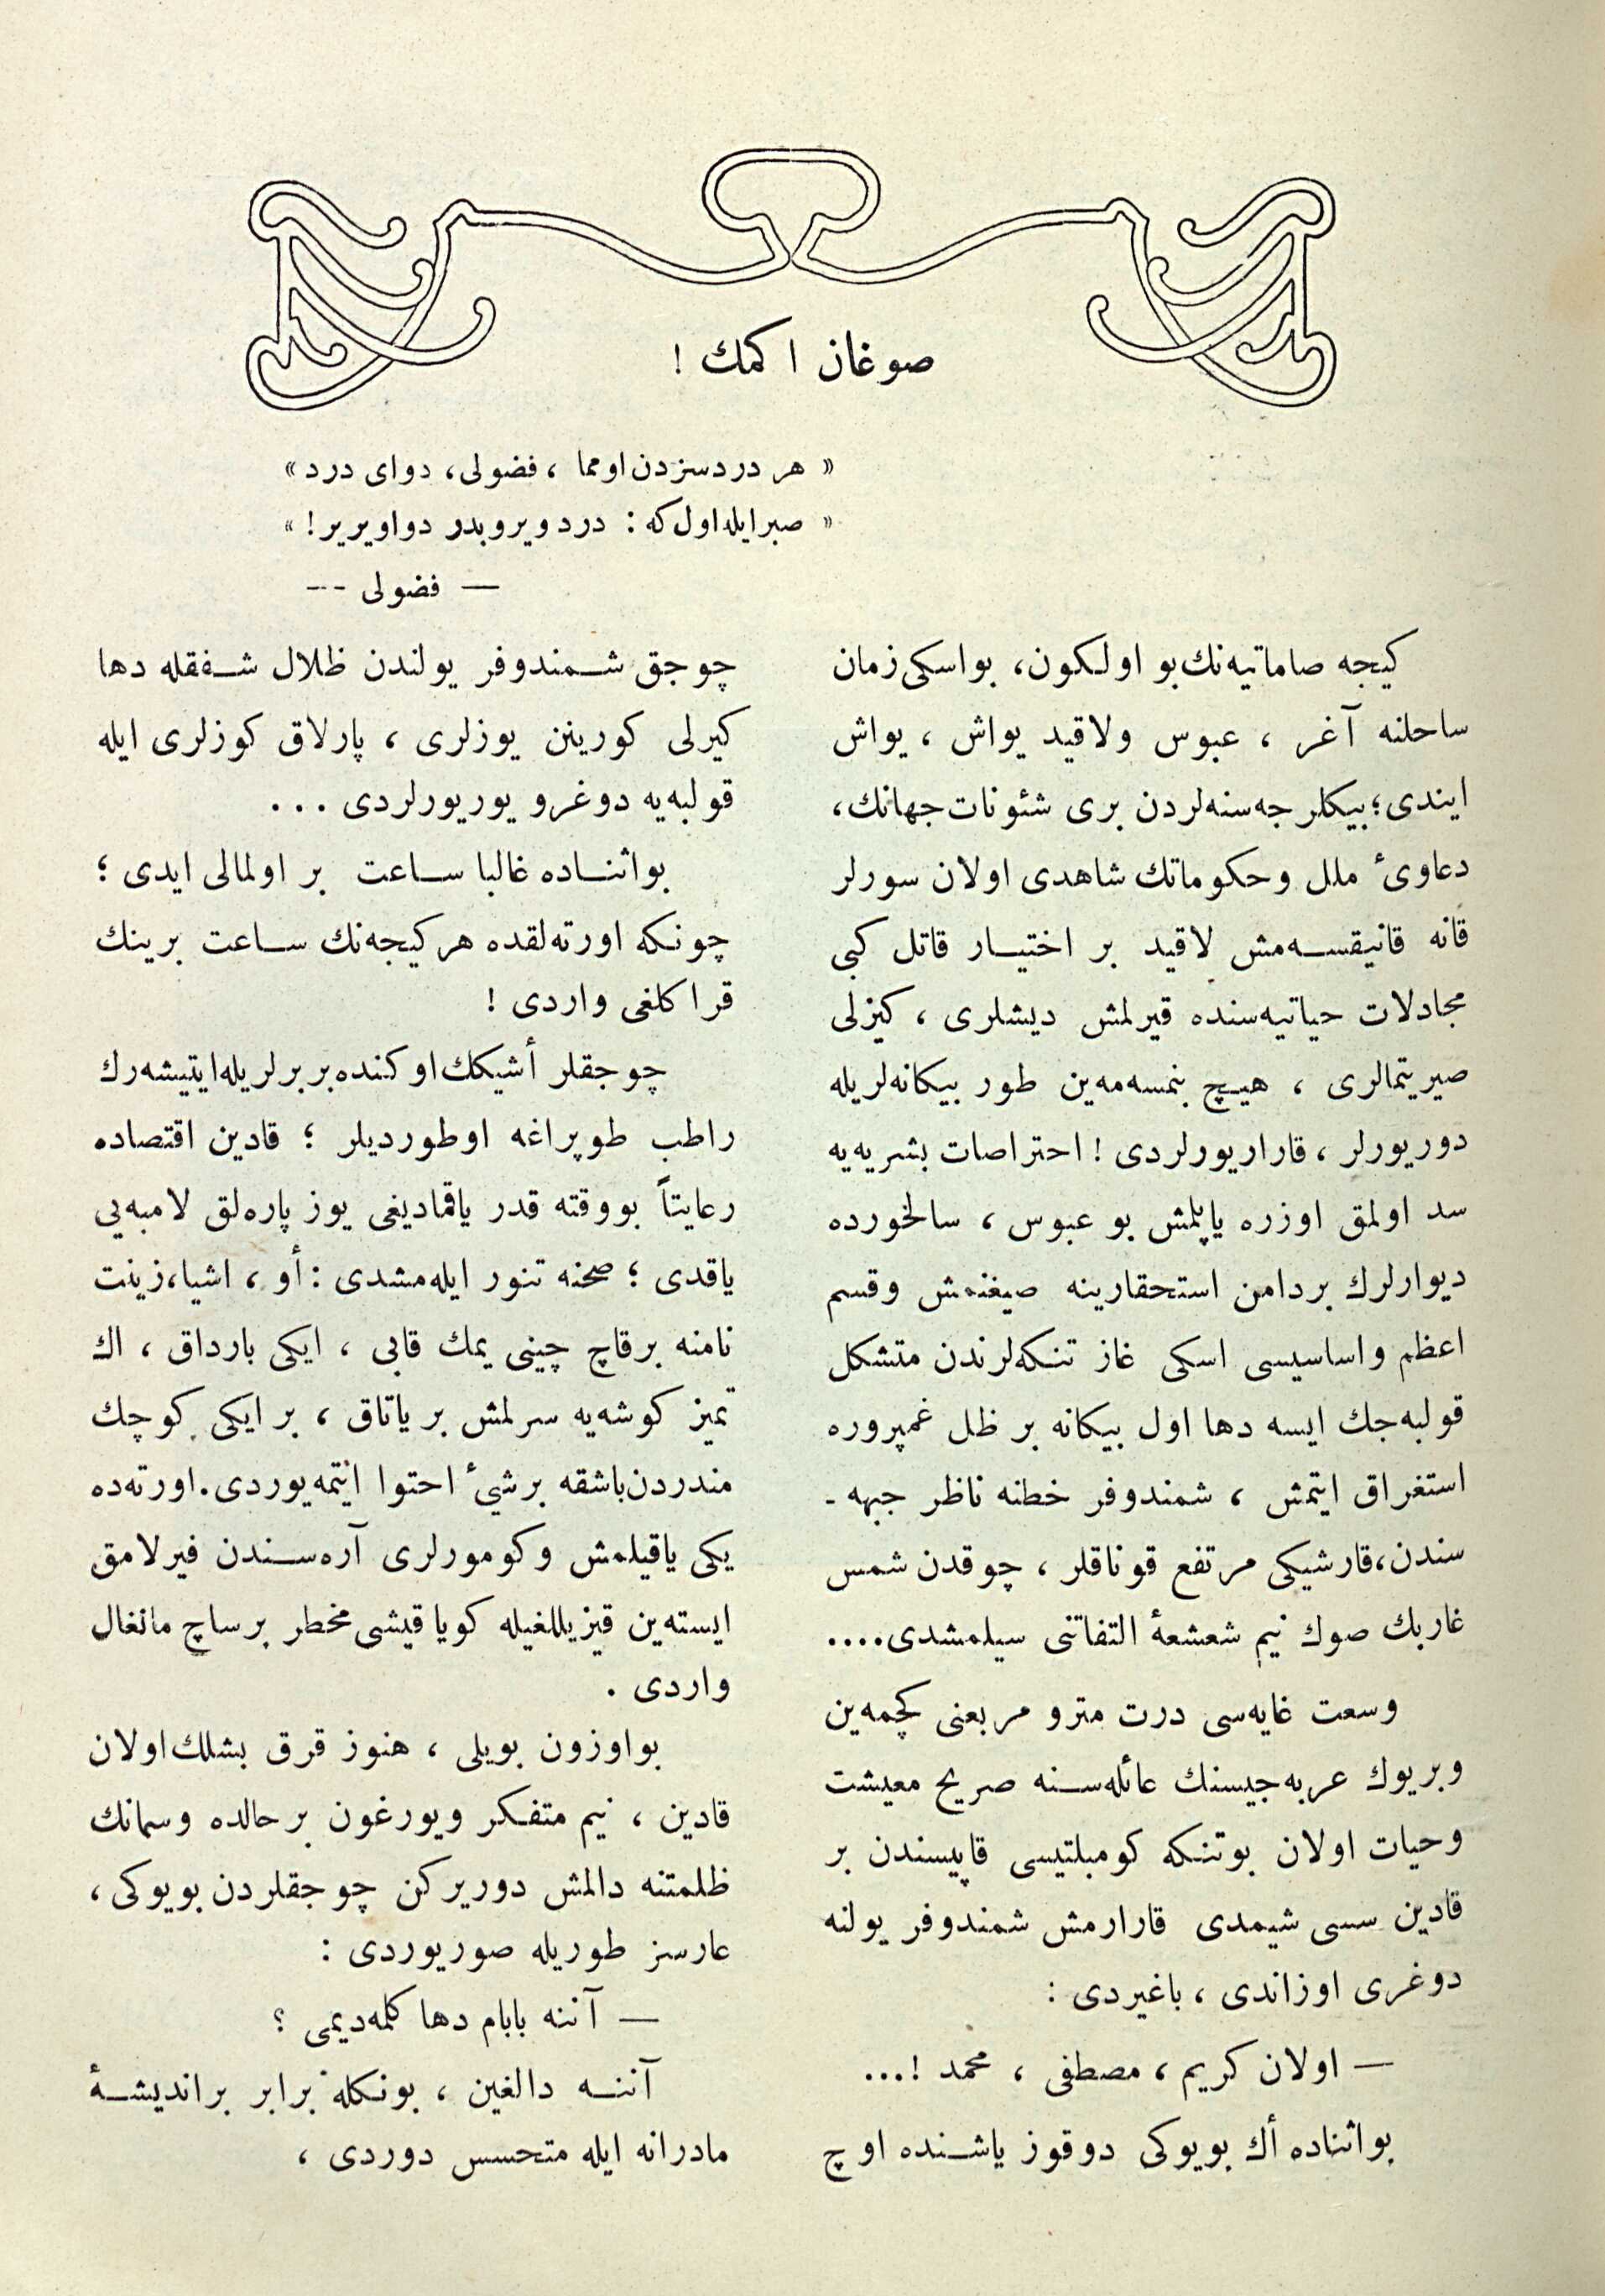 صوغان اكمك !
« هر دردسزدن اومما ، فضولی، دوای درد»
« صبر ایله اول كه : درد ویروبدر دوا ویریر! »
— فضولی --
كیجه صاماتیه‌نك بو اولكون، بو اسكی زمان
ساحلنه آغر ، عبوس ولاقید یواش ، یواش
ایندی؛ بیكلرجه سنه‌لردن بری شئونات جهانك،
دعاویٔ ملل وحكوماتك شاهدی اولان سورلر
قانه قانیقسه‌مش لاقید بر اختیار قاتل كبی
مجادلات حیاتیه‌سنده قیرلمش دیشلری ، كیزلی
صیریتمالری ، هیچ بنمسه‌مه‌ین طور بیكانه‌لریله
دوریورلر ، قاراریورلردی ! احتراصات بشریه‌یه
سد اولمق اوزره یاپلمش بو عبوس ، سالخورده
دیوارلرك بر دامن استحقارینه صیغنمش وقسم
اعظم واساسیسی اسكی غاز تنكه‌لرندن متشكل
قولبه‌جك ایسه دها اول بیكانه بر ظل غمپروره
استغراق ایتمش ، شمندوفر خطنه ناظر جبهه ـ
سندن، قارشیكی مرتفع قوناقلر ، چوقدن شمس
غاربك صوك نیم شعشعهٔ التفاتنی سیلمشدی....
وسعت غایه‌سی درت مترو مربعنی كچمه‌ین
وبریوك عربه‌جیسنك عائله‌سنه صریح معیشت
وحیات اولان بوتنكه كومبلتیسی قاپیسندن بر
قادین سسی شیمدی قارارمش شمندوفر یولنه
دوغری اوزاندی ، باغیردی :
— اولان كریم ، مصطفی ، محمد !...
بو اثناده أك بویوكی دوقوز یاشنده اوچ
چوجق شمندوفر یولندن ظلال شفقله دها
كیرلی كورینن یوزلری ، پارلاق كوزلری ایله
قولبه‌یه دوغرو یوریورلردی ...
بو اثناده غالبا ساعت بر اولمالی ایدی ؛
چونكه اورته‌لقده هركیجه‌نك ساعت برینك
قراكلغی واردی !
چوجقلر أشیكك اوكنده بربرلریله ایتیشه‌رك
راطب طوپراغه اوطوردیلر ؛ قادین اقتصاده
رعایتاً بو وقته قدر یاقمادیغی یوز پاره‌لق لامبه‌یی
یاقدی ؛ صحنه تنور ایله‌مشدی : أو ، اشیا، زینت
نامنه برقاچ چینی یمك قابی ، ایكی بارداق ، اك
تمیز كوشه‌یه سرلمش بر یاتاق ، بر ایكی كوچك
مندردن باشقه برشیٔ احتوا ایتمه‌یوردی. اورته‌ده
یكی یاقیلمش وكومورلری آره‌سندن فیرلامق
ایسته‌ین قیزیللغیله كویا قیشی مخطر بر ساچ مانغال
واردی .
بو اوزون بویلی ، هنوز قرق بشلك اولان
قادین ، نیم متفكر ویورغون بر حالده وسمانك
ظلمتنه دالمش دوریركن چوجقلردن بویوكی ،
عارسز طوریله صوریوردی :
— آننه بابام دها كلمه‌دیمی ؟
آننه دالغین ، بونكله برابر بر اندیشهٔ
مادرانه ایله متحسس دوردی ،